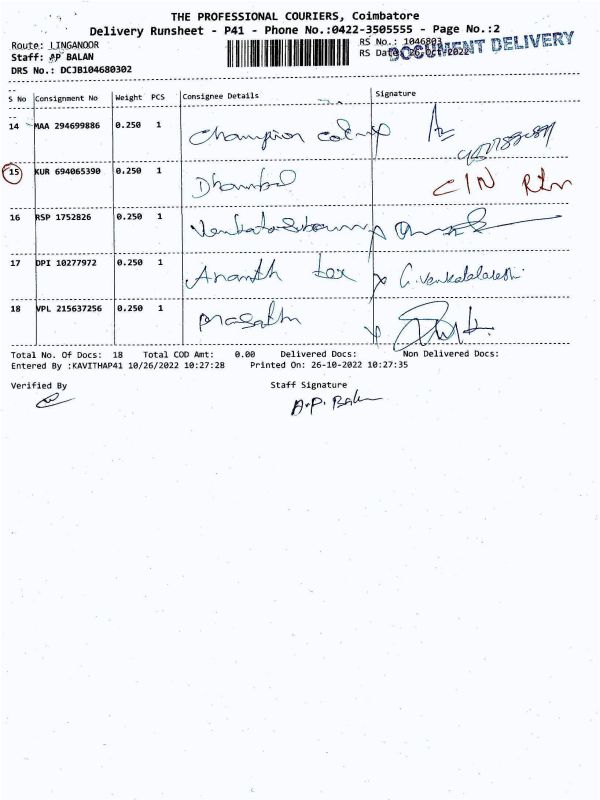 THE PROFESSIONAL COURIERS, Coimbatore
Delivery Runsheet - P41 - Phone No.:0422-3505555 - Page No.:2
Route: LINGANOOR
RS No.: 1046803
Staff: AP BALAN
RS Date: 26-Oct-2022
DOCUMENT DELIVERY
DRS No.: DCJB104680302
S No Consignment No Weight PCS Consignee Details Signature
14 MAA 294699886 0.250 1 Champion
15 KUR 694065390 0.250 1 CIN Rtn
16 RSP 1752826 0.250 1
17 DPI 10277972 0.250 1 Ananth tex G. Venkatalaresh
18 VPL 215637256 0.250 1 Prasath
Total No. Of Docs: 18 Total COD Amt: 0.00 Delivered Docs: Non Delivered Docs:
Entered By :KAVITHAP41 10/26/2022 10:27:28 Printed On: 26-10-2022 10:27:35
Verified By Staff Signature
A.P. Balan